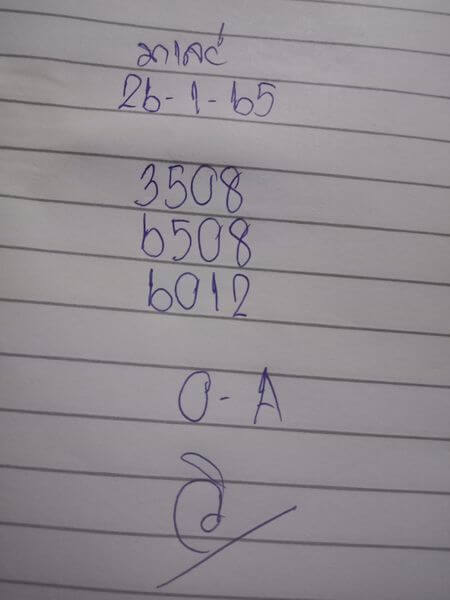 มาเลย์
26-1-65
3508
6508
6012
O-A